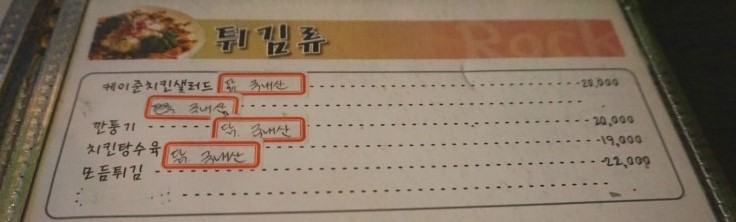 튀김류
Rock
케이준치킨샐러드 닭 국내산 20,000
국내산
깐풍기 닭. 국내산 20,000
치킨탕수육 닭. 국내산 19,000
모듬튀김 22,000